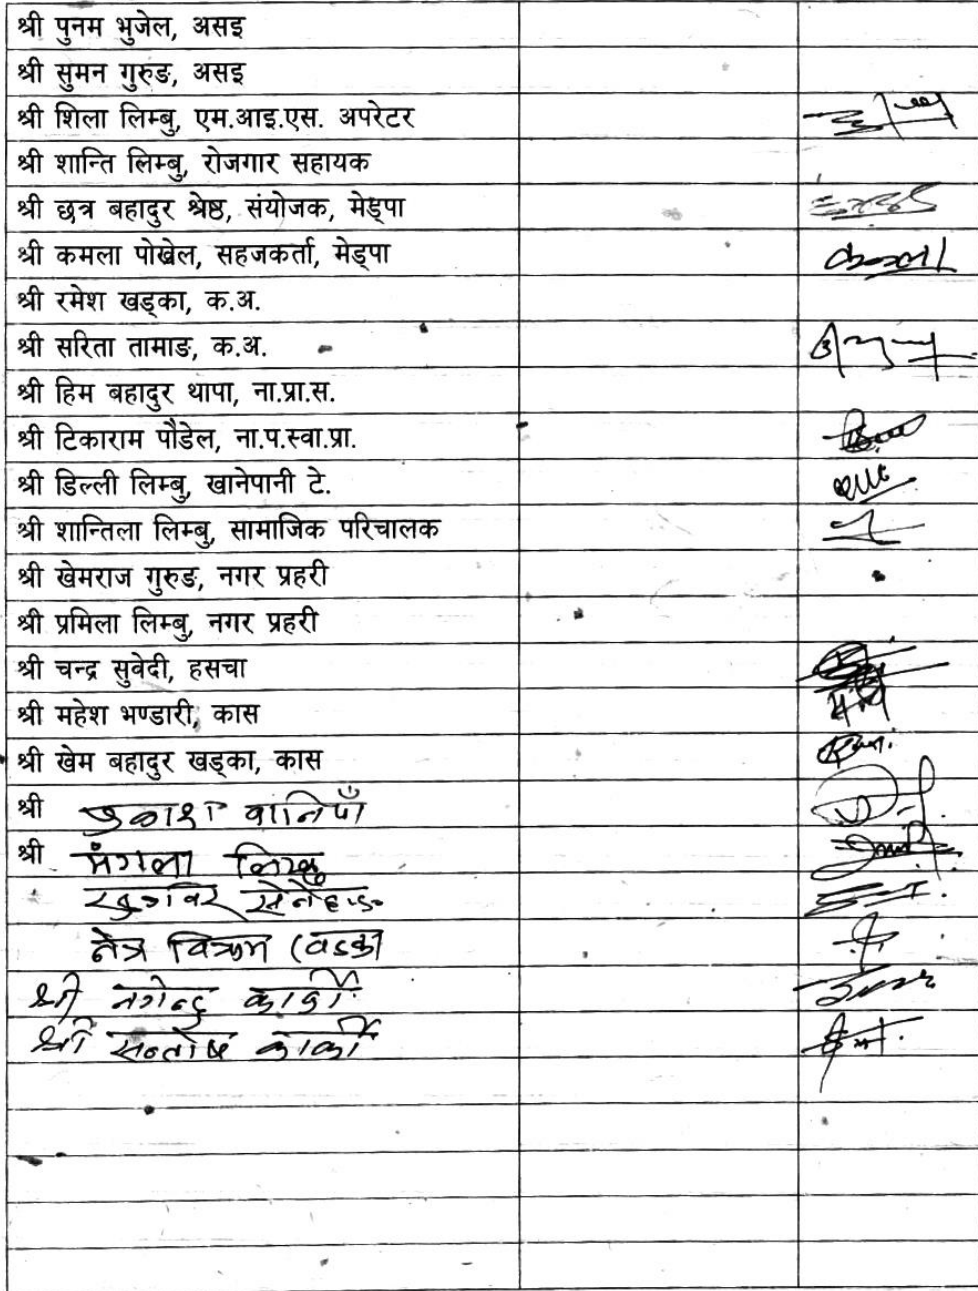 श्री पुनम भुजेल, असइ
श्री सुमन गुरुङ, असइ
श्री शिला लिम्बु, एम.आइ.एस. अपरेटर
श्री शान्ति लिम्बु, रोजगार सहायक
श्री छत्र बहादुर श्रेष्ठ, संयोजक, मेड्पा
श्री कमला पोखेल, सहजकर्ता, मेड्पा कमला
श्री रमेश खड्का, क.अ.
श्री सरिता तामाङ, क.अ.
श्री हिम बहादुर थापा, ना.प्रा.स.
श्री टिकाराम पौडेल, ना.प.स्वा.प्रा.
श्री डिल्ली लिम्बु, खानेपानी टे.
श्री शान्तिला लिम्बु, सामाजिक परिचालक
श्री खेमराज गुरुङ, नगर प्रहरी
श्री प्रमिला लिम्बु, नगर प्रहरी
श्री चन्द्र सुवेदी, हसचा
श्री महेश भण्डारी, कास
श्री खेम बहादुर खड्का, कास
श्री प्रकाश वानियाँ
श्री मंगला लिम्बु
नेत्र विक्रम खड्का
श्री नगेन्द्र कार्की
श्री सन्तोष कार्की